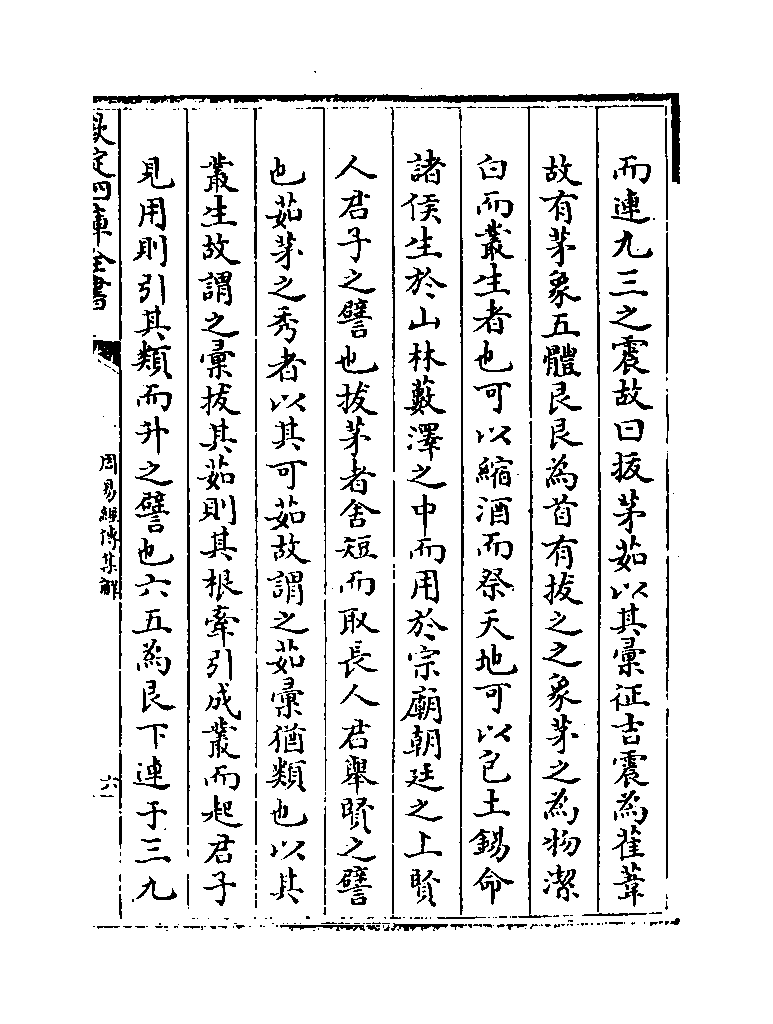 而連九三之震故曰拔茅茹以其彚征吉震為萑葦
故有茅象五體艮艮為首有拔之之象茅之為物潔
白而叢生者也可以縮酒而祭天地可以包土錫命
諸侯生於山林藪澤之中而用於宗廟朝廷之上賢
人君子之譬也拔茅者舍短而取長人君舉賢之譬
也茹茅之秀者以其可茹故謂之茹彚猶類也以其
叢生故謂之彚拔其茹則其根牽引成叢而起君子
見用則引其類而升之譬也六五為艮下連于三九
欽定四庫全書
周易經傳集解
六